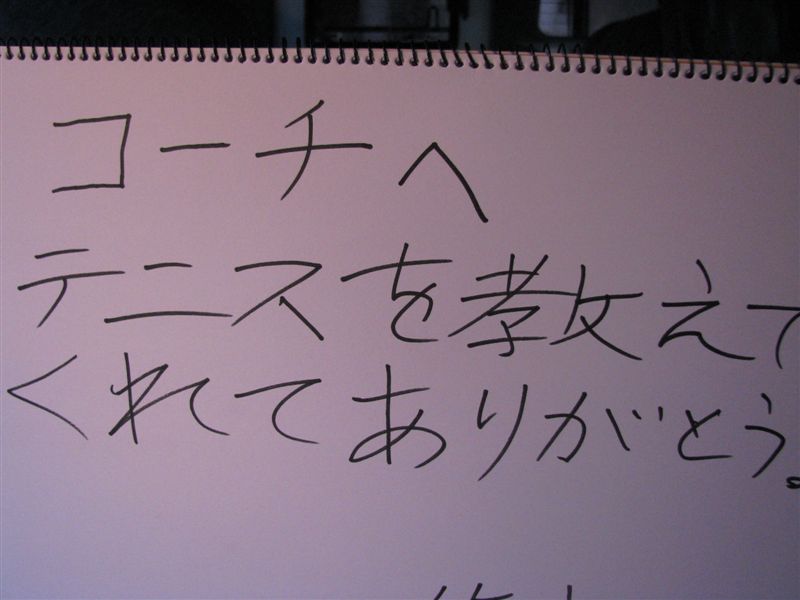 コーチへ
テニスを教えて
くれてありがとう。